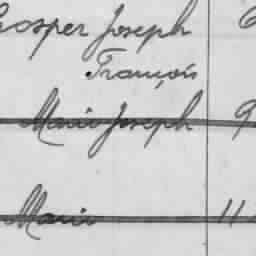 Gosper Joseph 6
François
Marie Joseph 9
Marie 11